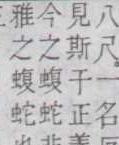 八尺。一名
見斯干正義
今之蝮蛇非
雅之蝮蛇也